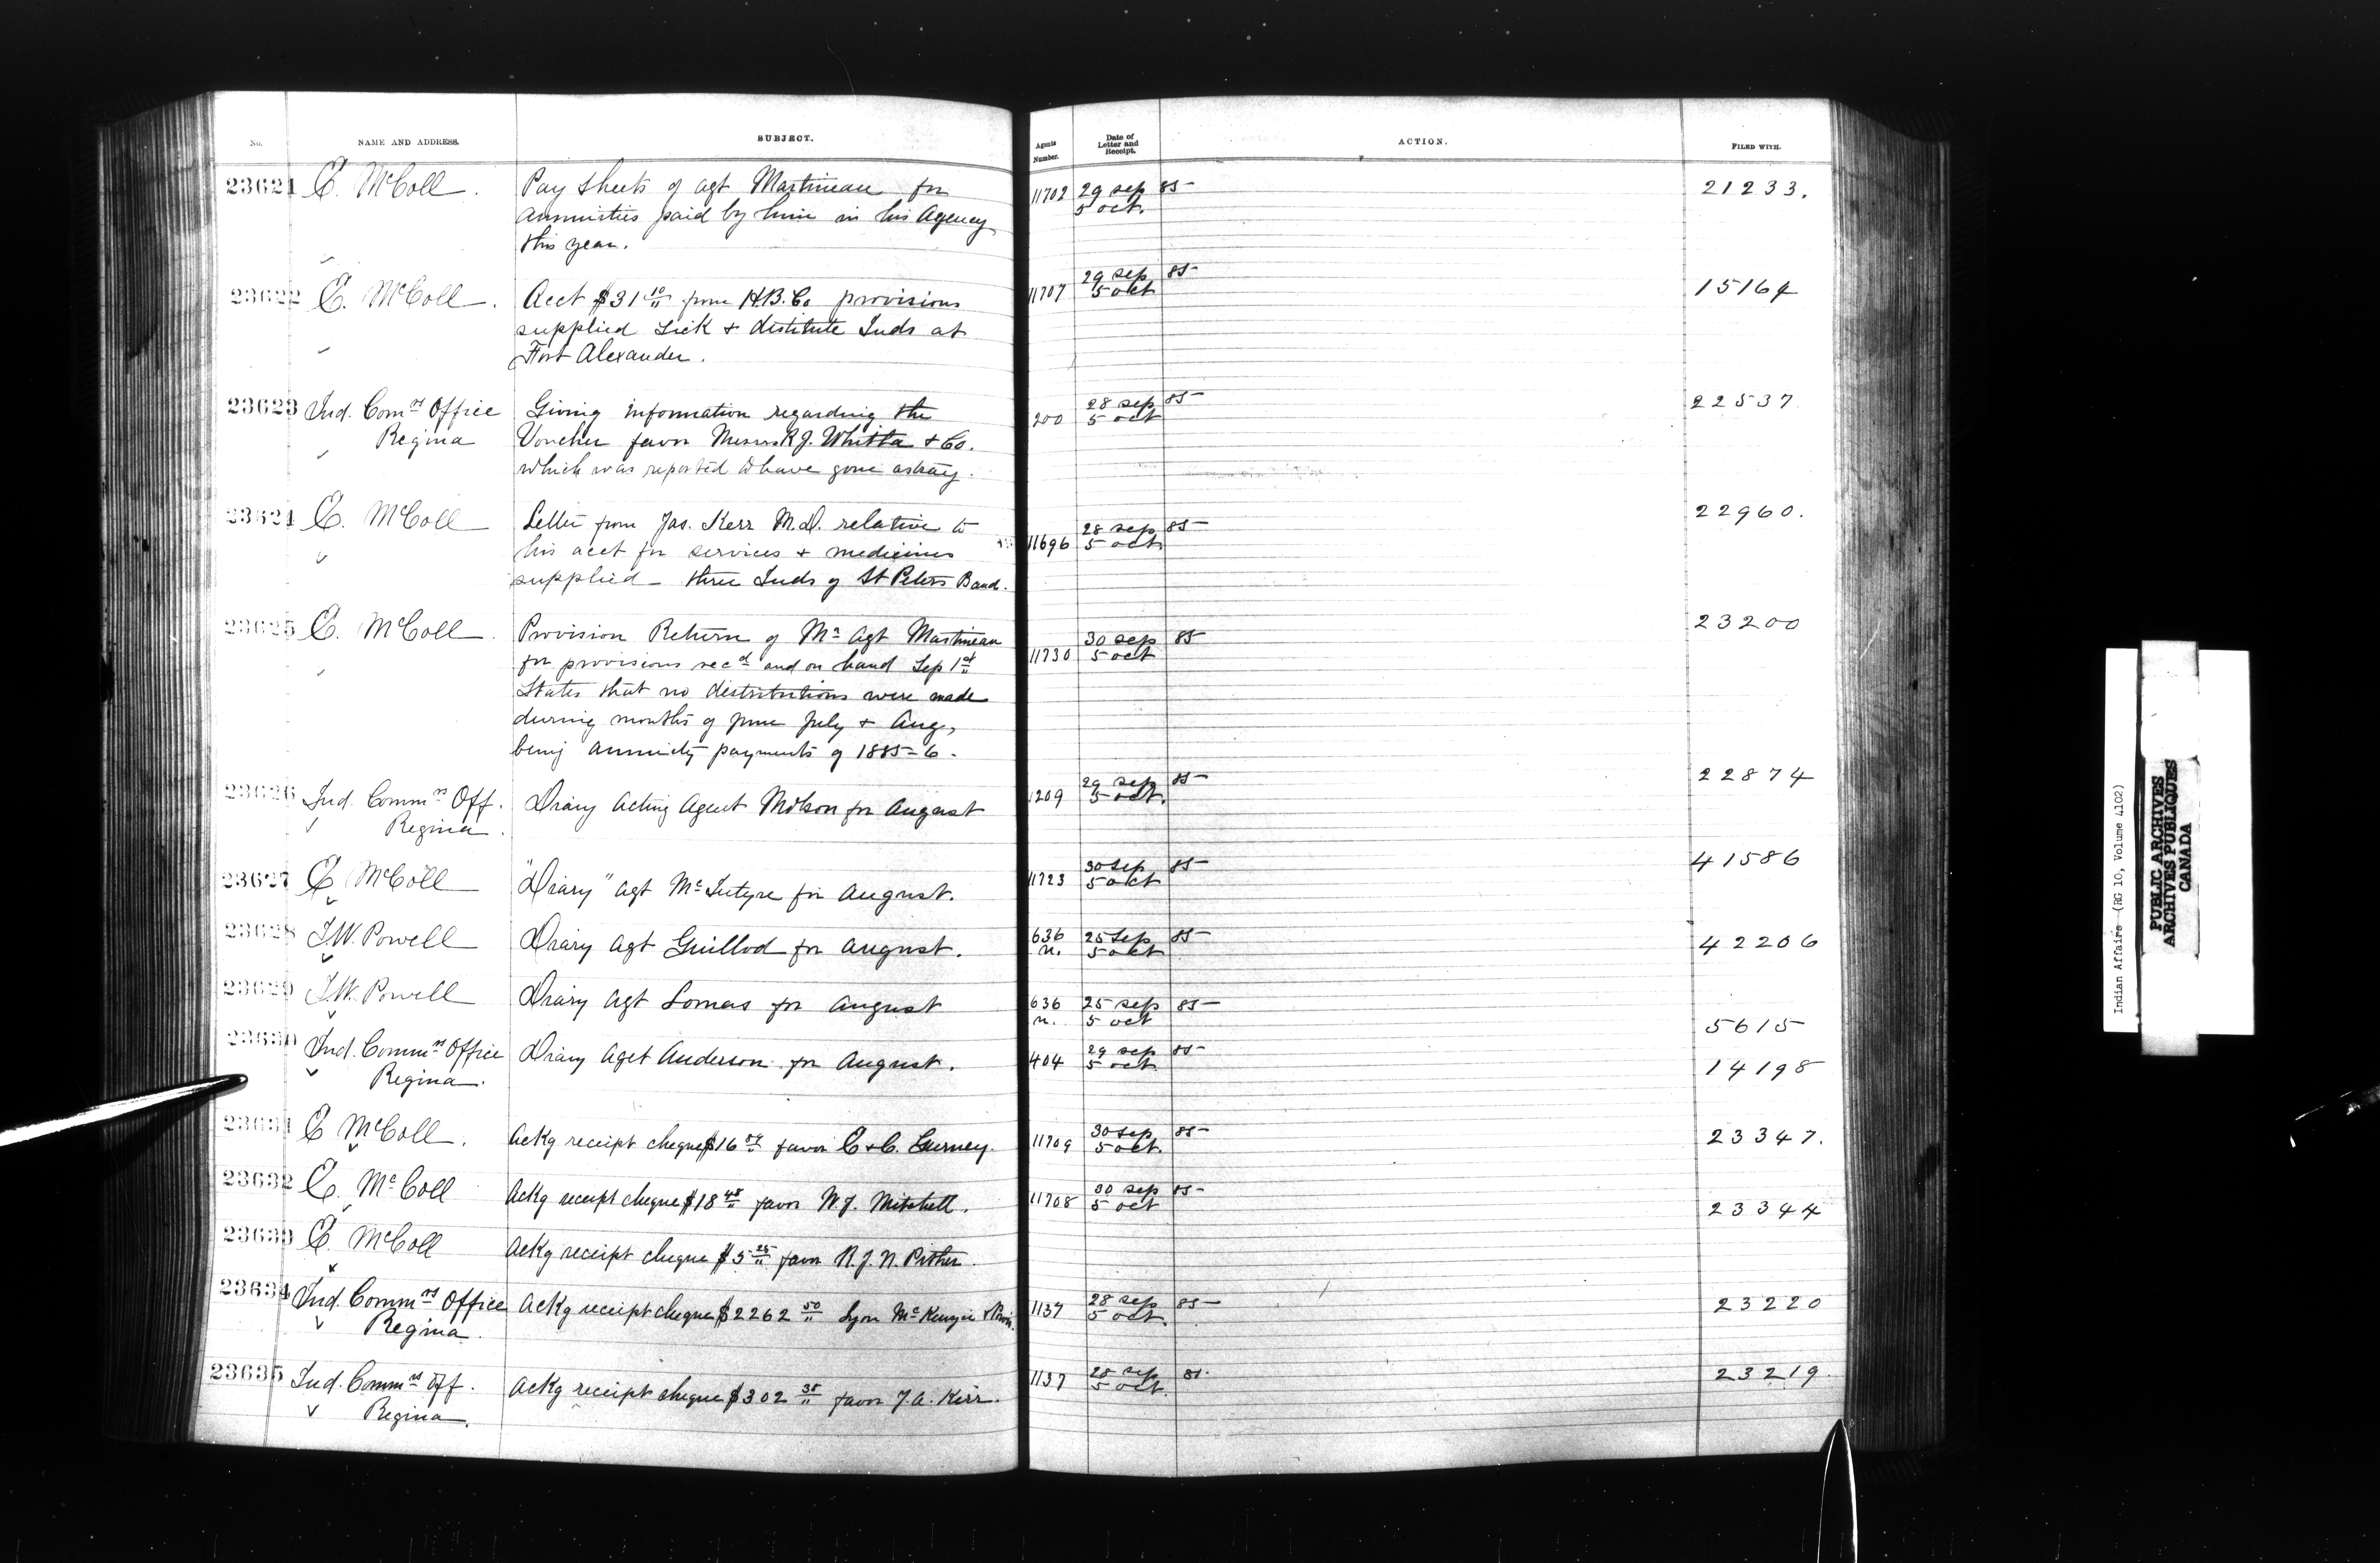 No. NAME AND ADDRESS. SUBJECT. Agents Number. Date of Letter and Receipt. ACTION. FILED WITH.
23621 E. McColl. Pay Sheets of agt Martineau for 11702 29 sep 85 21233.
annuities paid by him in his Agency 5 oct.
this year.
23622 E. McColl. Acct $31 10/" from H.B. Co provisions 11707 29 sep 85 15164
supplied sick & destitute Inds at 5 oct
Fort Alexander.
23623 Ind. Comrs Office Giving information regarding the 200 28 sep 85 22537
Regina Voucher favor Messrs R.J. Whitla & Co. 5 oct
which was reported to have gone astray.
23624 E. McColl Letter from Jas. Kerr M.D. relative to 11696 28 sep 85 22960.
his acct for services & medicines 5 oct.
supplied three Inds of St Peters Band.
23625 E. McColl. Provision Return of Mr Agt Martineau 11730 30 sep 85 23200
for provisions recd and on hand Sep 1st 5 oct
States that no distributions were made
during months of June July & Aug,
being annuity payments of 1885-6.
23626 Ind. Commrs Off. Diary Acting Agent for August 1209 29 sep 85 22874
Regina. 5 oct.
23627 E McColl "Diary" agt McIntyre for August. 11723 30 sep 85 41586
5 oct
23628 I.W. Powell Diary Agt Guillod for August. 636 n. 25 sep 85 42206
5 oct
23629 I.W. Powell Diary Agt Lomas for August 636 n. 25 sep 85 5615
5 oct
23630 Ind. Commrs Office Diary Aget Anderson for August. 404 29 sep 85 14198
Regina. 5 oct
23631 E McColl. Ackg receipt cheque $16 favor E & C. Gurney. 11709 30 sep 85 23347.
5 oct.
23632 E. McColl Ackg receipt cheque $18 48/" favor W.J. Mitchell. 11708 30 sep 85 23344
5 oct
23633 E. McColl Ackg receipt cheque $5 25/" favor R.J.N. Pither.
23634 Ind. Commrs Office Ackg receipt cheque $2262 50/" Lyon McKenzie & 1137 28 sep 85 23220
Regina. 5 oct.
23635 Ind. Commrs Off. Ackg receipt cheque $302 35/" favor J.A. Kerr. 1137 28 sep 85 23219.
Regina. 5 oct.
Indian Affairs (RG 10, Volume 4102)
PUBLIC ARCHIVES
ARCHIVES PUBLIQUES
CANADA